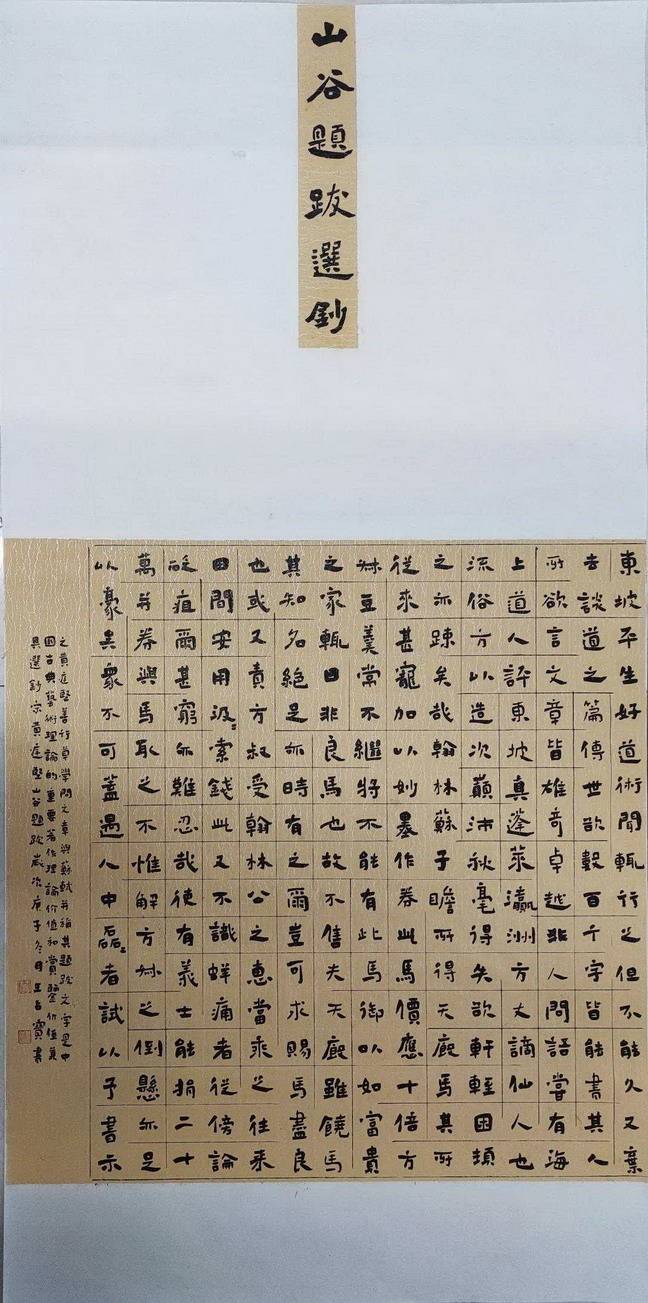 山谷題跋選鈔
東坡平生好道術聞輒行之但不能久又棄
去談道之篇傳世欲數百千字皆能書其人
所欲言文章皆雄奇卓越非人間語嘗有海
上道人評東坡真蓬萊瀛洲方丈謫仙人也
流俗方以造次顛沛秋毫得失欲軒輊困頓
之亦疎矣哉翰林蘇子瞻所得天廄馬其所
從來甚寵加以妙墨作券此馬價應十倍方
叔豆羹常不繼將不能有此馬御以如富貴
之家輒曰非良馬也故不售夫天廄雖饒馬
其知名絕足亦時有之爾豈可求賜馬盡良
也或又責方叔受翰林公之惠當乘之往來
田間安用汲〻索錢此又不識蛘痛者從傍論
砭疽爾甚窮亦難忍哉使有義士能捐二十
萬并券與馬取之不惟解方叔之倒懸亦足
以豪矣衆不可蓋遇人中磊〻者試以予書示
之黃庭堅善行草學問文章與蘇軾并稱其題跋文字是中
國古典藝術理論的重要著作理論價值和賞鑒價值兼
具選鈔宋黃庭堅山谷題跋歲次庚子冬月王占寶書